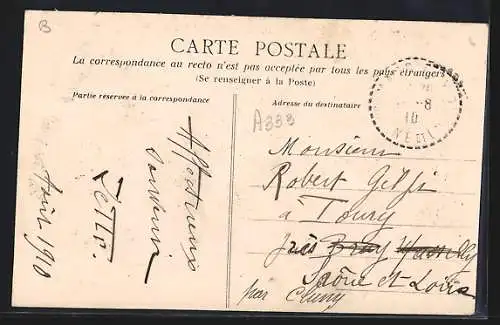 B
CARTE POSTALE
La correspondance au recto n'est pas acceptée par tous les pays étrangers
(Se renseigner à la Poste)
Partie réservée à la correspondance
Adresse du destinataire
A333
Affectueux
souvenir
Août 1910
Monsieur
Robert
à Toury
près Bray
Saône et Loire
par Cluny
8
10